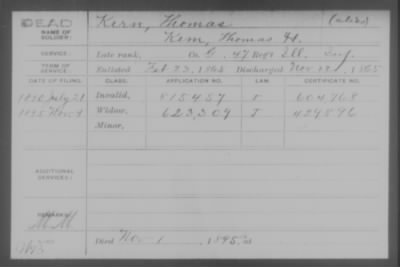 DEAD Kern, Thomas (alias)
NAME OF SOLDIER: Kem, Thomas H.
SERVICE: Late rank, Co. G, 47 Reg't Ill. Inf.
TERM OF SERVICE: Enlisted Feb 23, 1865 Discharged Nov 12, 1865
DATE OF FILING. CLASS. APPLICATION NO. LAW. CERTIFICATE NO.
1890 July 21 Invalid, 815457 604,768
1895 Nov 9 Widow, 623,309 429896
Minor,
ADDITIONAL SERVICES:
REMARKS:
Died Nov 1, 1895, at